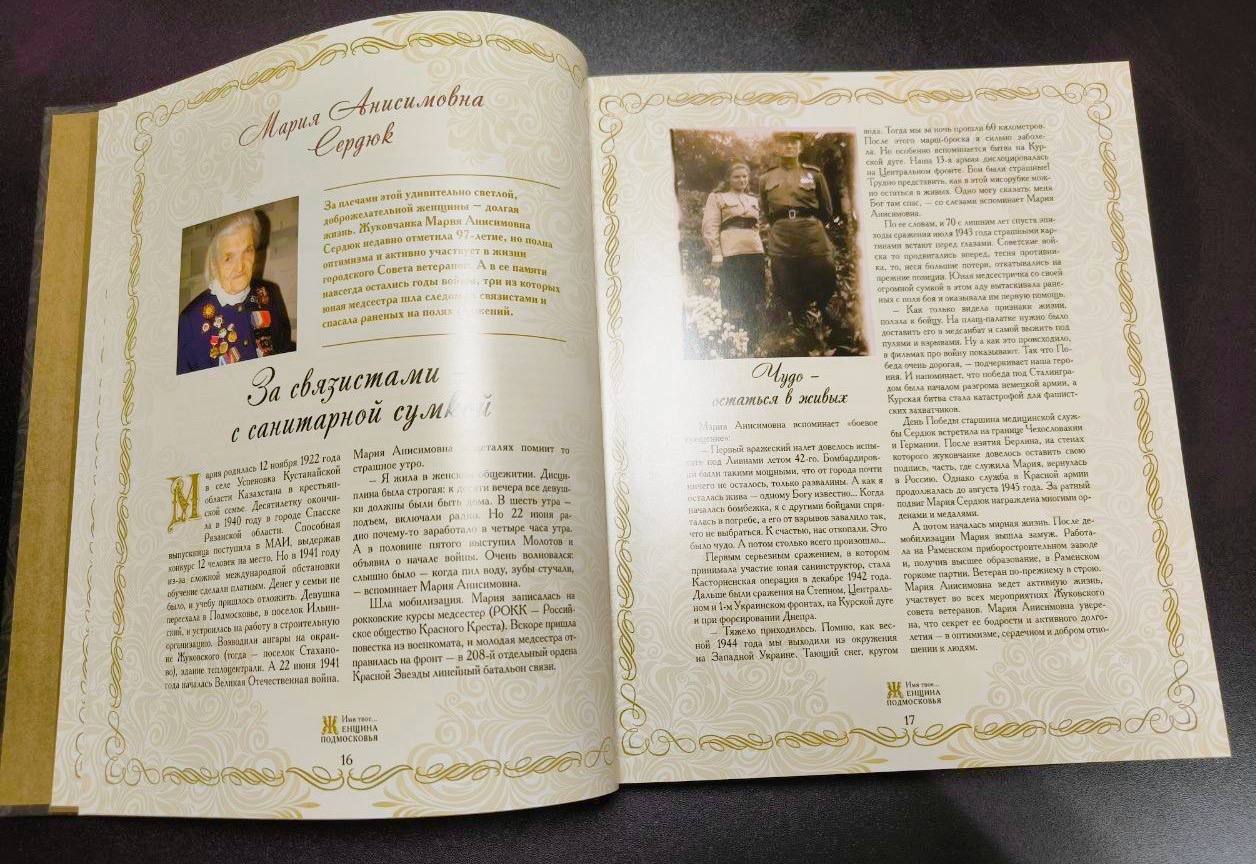 Мария Анисимовна
Сердюк
За плечами этой удивительно светлой,
доброжелательной женщины – долгая
жизнь. Жуковчанка Мария Анисимовна
Сердюк недавно отметила 97-летие, но полна
оптимизма и активно участвует в жизни
городского Совета ветеранов. А в ее памяти
навсегда остались годы войны, три из которых
юная медсестра шла следом за связистами и
спасала раненых на полях сражений.
За связистами –
с санитарной сумкой
Мария родилась 12 ноября 1922 года
в селе Успеновка Кустанайской
области Казахстана в крестьян-
ской семье. Десятилетку окончи-
ла в 1940 году в городе Спасске
Рязанской области. Способная
выпускница поступила в МАИ, выдержав
конкурс 12 человек на место. Но в 1941 году
из-за сложной международной обстановки
обучение сделали платным. Денег у семьи не
было, и учебу пришлось отложить. Девушка
переехала в Подмосковье, в поселок Ильин-
ский, и устроилась на работу в строительную
организацию. Возводили ангары на окраи-
не Жуковского (тогда – поселок Стахано-
во), здание теплоцентрали. А 22 июня 1941
года началась Великая Отечественная война.
Мария Анисимовна в деталях помнит то
страшное утро.
– Я жила в женском общежитии. Дисци-
плина была строгая: к десяти вечера все девуш-
ки должны были быть дома. В шесть утра –
подъем, включали радио. Но 22 июня ра-
дио почему-то заработало в четыре часа утра.
А в половине пятого выступил Молотов и
объявил о начале войны. Очень волновался:
слышно было – когда пил воду, зубы стучали,
– вспоминает Мария Анисимовна.
Шла мобилизация. Мария записалась на
рокковские курсы медсестер (РОКК – Россий-
ское общество Красного Креста). Вскоре пришла
повестка из военкомата, и молодая медсестра от-
правилась на фронт – в 208-й отдельный ордена
Красной Звезды линейный батальон связи.
Имя твое...
ЖЕНЩИНА
ПОДМОСКОВЬЯ
16
Чудо –
остаться в живых
Мария Анисимовна вспоминает «боевое
крещение»:
– Первый вражеский налет довелось испы-
тать под Ливнами летом 42-го. Бомбардиров-
ки были такими мощными, что от города почти
ничего не осталось, только развалины. А как я
осталась жива – одному Богу известно... Когда
началась бомбежка, я с другими бойцами спря-
талась в погребе, а его от взрывов завалило так,
что не выбраться. К счастью, нас откопали. Это
было чудо. А потом столько всего произошло...
Первым серьезным сражением, в котором
принимала участие юная санинструктор, стала
Касторненская операция в декабре 1942 года.
Дальше были сражения на Степном, Централь-
ном и 1-м Украинском фронтах, на Курской дуге
и при форсировании Днепра.
– Тяжело приходилось. Помню, как вес-
ной 1944 года мы выходили из окружения
на Западной Украине. Тающий снег, кругом
вода. Тогда мы за ночь прошли 60 километров.
После этого марш-броска я сильно заболе-
ла. Но особенно вспоминается битва на Кур-
ской дуге. Наша 13-я армия дислоцировалась
на Центральном фронте. Бои были страшные!
Трудно представить, как в этой мясорубке мож-
но остаться в живых. Одно могу сказать: меня
Бог там спас, – со слезами вспоминает Мария
Анисимовна.
По ее словам, и 70 с лишним лет спустя эпи-
зоды сражения июля 1943 года страшными кар-
тинами встают перед глазами. Советские вой-
ска то продвигались вперед, тесня противни-
ка, то, неся большие потери, откатывались на
прежние позиции. Юная медсестричка со своей
огромной сумкой в этом аду вытаскивала ране-
ных с поля боя и оказывала им первую помощь.
– Как только видела признаки жизни,
ползла к бойцу. На плащ-палатке нужно было
доставить его в медсанбат и самой выжить под
пулями и взрывами. Ну а как это происходило,
в фильмах про войну показывают. Так что По-
беда очень дорогая, – подчеркивает наша геро-
иня. И напоминает, что победа под Сталингра-
дом была началом разгрома немецкой армии, а
Курская битва стала катастрофой для фашист-
ских захватчиков.
День Победы старшина медицинской служ-
бы Сердюк встретила на границе Чехословакии
и Германии. После взятия Берлина, на стенах
которого жуковчанке довелось оставить свою
подпись, часть, где служила Мария, вернулась
в Россию. Однако служба в Красной армии
продолжалась до августа 1945 года. За ратный
подвиг Мария Сердюк награждена многими ор-
денами и медалями.
А потом началась мирная жизнь. После де-
мобилизации Мария вышла замуж. Работа-
ла на Раменском приборостроительном заводе
и, получив высшее образование, в Раменском
горкоме партии. Ветеран по-прежнему в строю.
Мария Анисимовна ведет активную жизнь,
участвует во всех мероприятиях Жуковского
совета ветеранов. Мария Анисимовна увере-
на, что секрет ее бодрости и активного долго-
летия – в оптимизме, сердечном и добром отно-
шении к людям.
Имя твое...
ЖЕНЩИНА
ПОДМОСКОВЬЯ
17